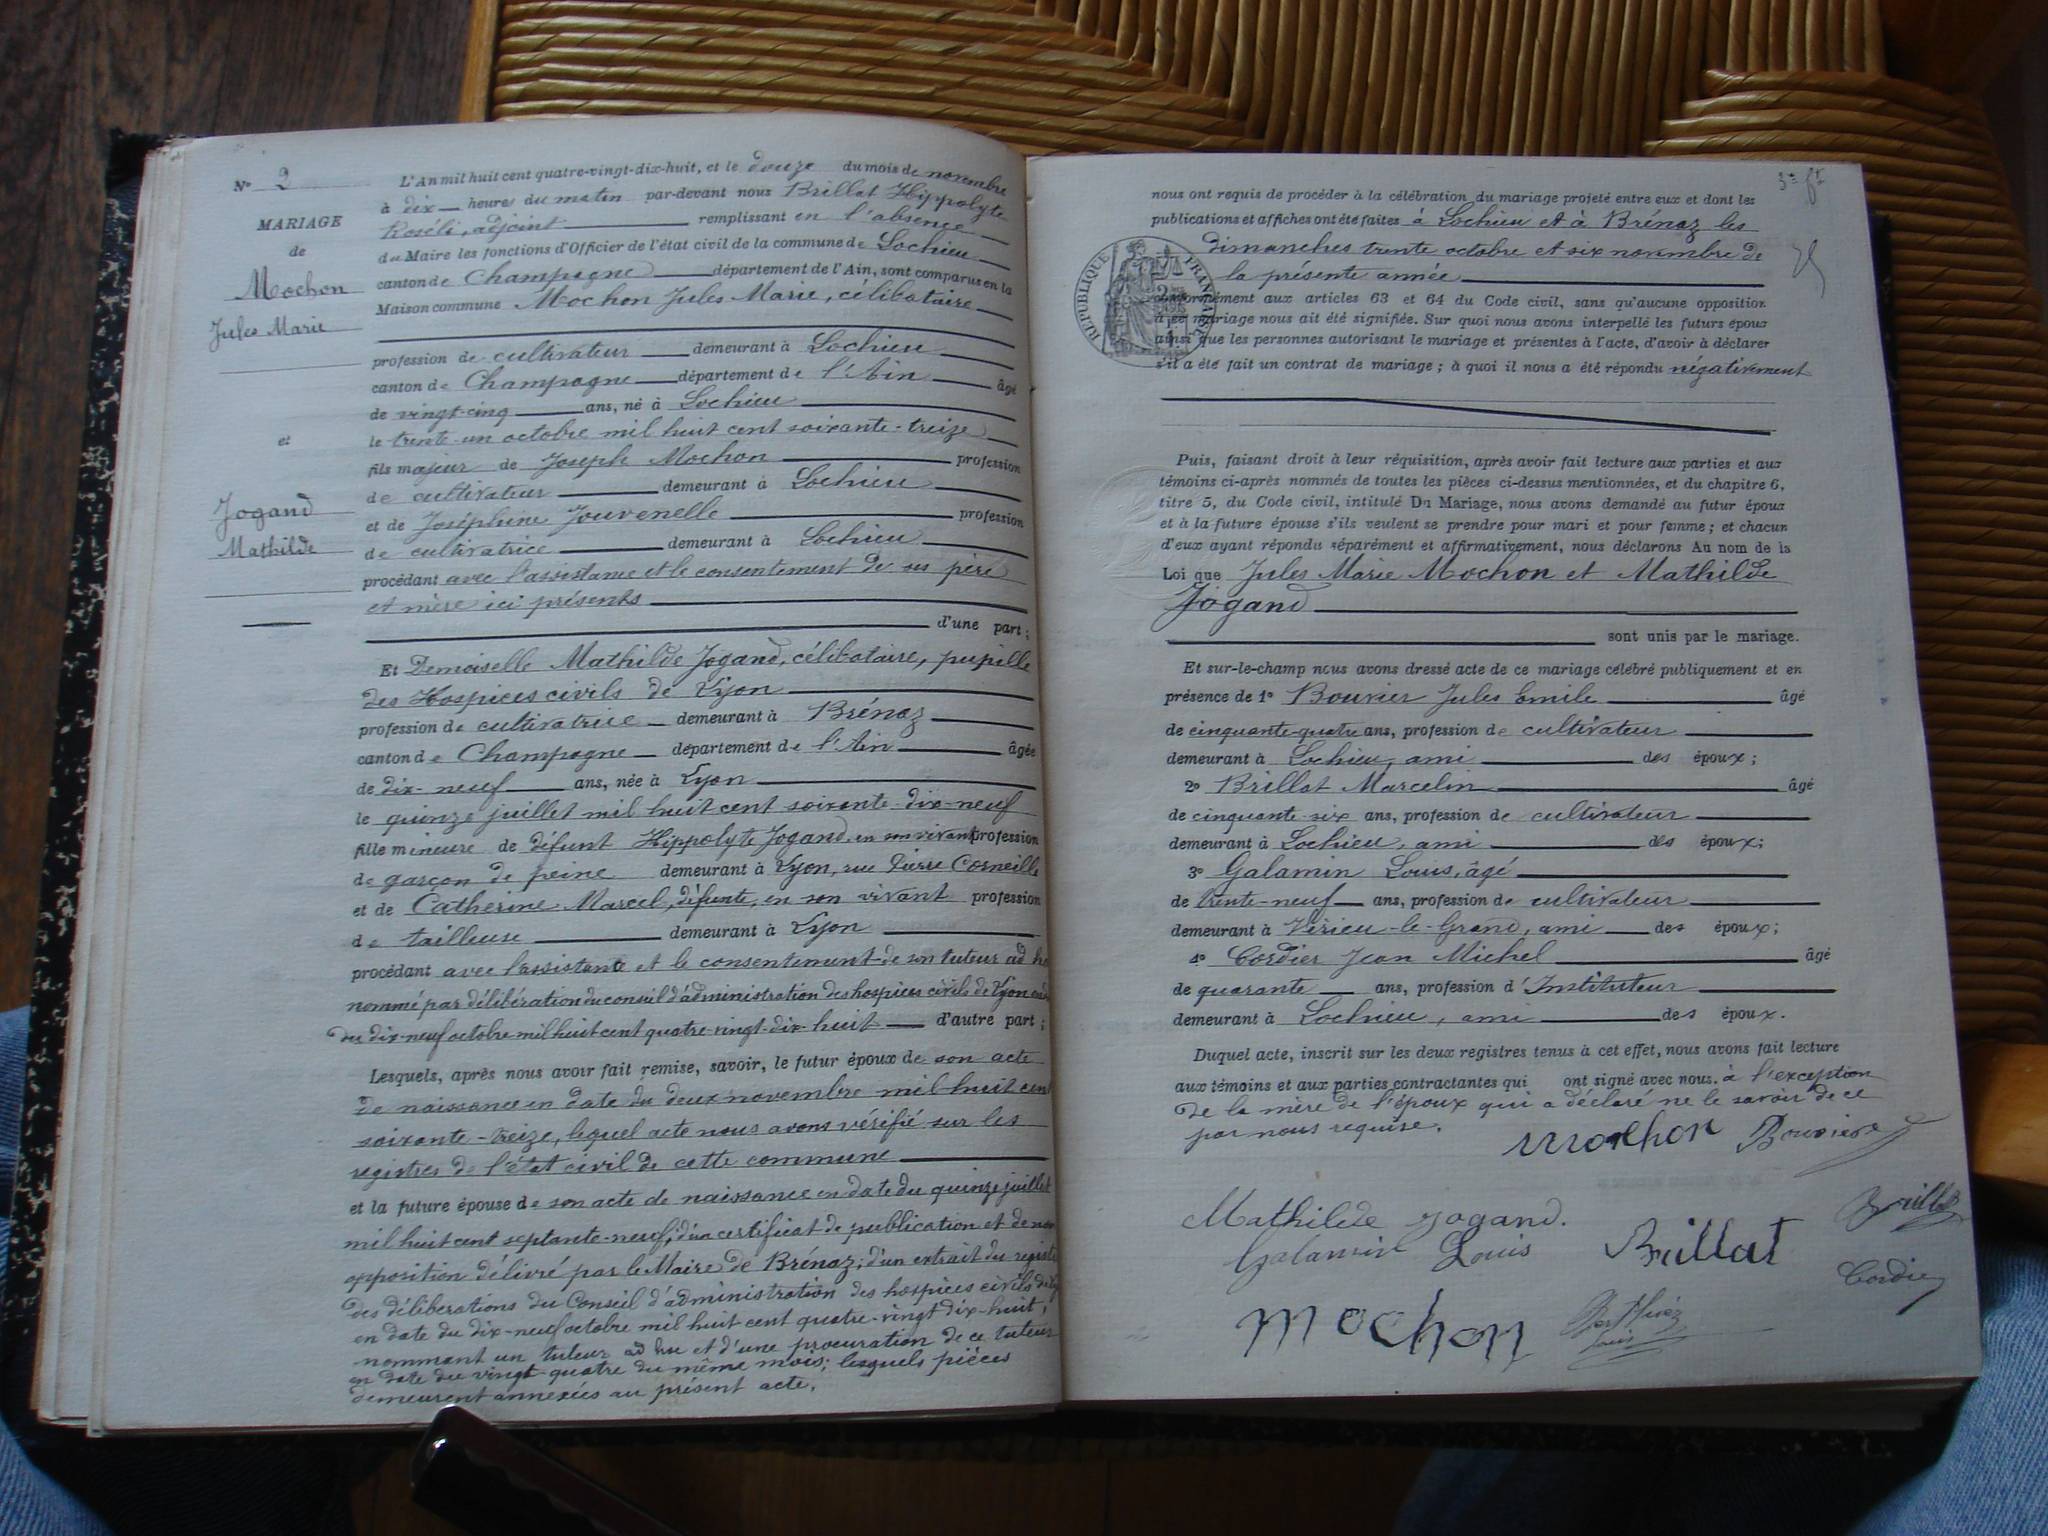 N° 2
MARIAGE
de
Mochon
Jules Marie
et
Jogand
Mathilde
L'An mil huit cent quatre-vingt-dix-huit, et le douze du mois de novembre
à dix heures du matin par-devant nous Brillat Hippolyte
Roséli, adjoint remplissant en l'absence
du Maire les fonctions d'Officier de l'état civil de la commune de Lochieu
canton de Champagne département de l'Ain, sont comparus en la
Maison commune Mochon Jules Marie, célibataire
profession de cultivateur demeurant à Lochieu
canton de Champagne département de l'Ain âgé
de vingt-cinq ans, né à Lochieu
le trente-un octobre mil huit cent soixante-treize
fils majeur de Joseph Mochon profession
de cultivateur demeurant à Lochieu
et de Joséphine Jouvenelle profession
de cultivatrice demeurant à Lochieu
procédant avec l'assistance et le consentement de ses père
et mère ici présents
d'une part;
Et Demoiselle Mathilde Jogand, célibataire, pupille
des Hospices civils de Lyon
profession de cultivatrice demeurant à Brénaz
canton de Champagne département de l'Ain âgée
de dix-neuf ans, née à Lyon
le quinze juillet mil huit cent soixante-dix-neuf
fille mineure de défunt Hippolyte Jogand, en son vivant profession
de garçon de peine demeurant à Lyon, rue Pierre Corneille
et de Catherine Marcel, défunte, en son vivant profession
de tailleuse demeurant à Lyon
procédant avec l'assistante et le consentement de son tuteur ad
nommé par délibération du conseil d'administration des hospices civils de Lyon
du dix-neuf octobre mil huit cent quatre-vingt-dix-huit d'autre part;
Lesquels, après nous avoir fait remise, savoir, le futur époux de son acte
de naissance en date du deux novembre mil huit cent
soixante-treize, lequel acte nous avons vérifié sur les
registres de l'état civil de cette commune
et la future épouse de son acte de naissance en date du quinze juillet
mil huit cent septante-neuf, d'un certificat de publication et de non
opposition délivré par le Maire de Brénaz; d'un extrait du registre
des délibérations du Conseil d'administration des hospices civils de
en date du dix-neuf octobre mil huit cent quatre-vingt dix-huit,
nommant un tuteur ad hoc et d'une procuration de ce tuteur
en date du vingt-quatre du même mois; lesquels pièces
demeurent annexées au présent acte.
nous ont requis de procéder à la célébration du mariage projeté entre eux et dont les
publications et affiches ont été faites à Lochieu et à Brénaz les
dimanches trente octobre et six novembre de
la présente année
RÉPUBLIQUE FRANÇAISE
conformément aux articles 63 et 64 du Code civil, sans qu'aucune opposition
à ce mariage nous ait été signifiée. Sur quoi nous avons interpellé les futurs époux
ainsi que les personnes autorisant le mariage et présentes à l'acte, d'avoir à déclarer
s'il a été fait un contrat de mariage; à quoi il nous a été répondu négativement
Puis, faisant droit à leur réquisition, après avoir fait lecture aux parties et aux
témoins ci-après nommés de toutes les pièces ci-dessus mentionnées, et du chapitre 6,
titre 5, du Code civil, intitulé Du Mariage, nous avons demandé au futur époux
et à la future épouse s'ils veulent se prendre pour mari et pour femme; et chacun
d'eux ayant répondu séparément et affirmativement, nous déclarons Au nom de la
Loi que Jules Marie Mochon et Mathilde
Jogand
sont unis par le mariage.
Et sur-le-champ nous avons dressé acte de ce mariage célébré publiquement et en
présence de 1° Bouvier Jules Emile âgé
de cinquante-quatre ans, profession de cultivateur
demeurant à Lochieu, ami des époux;
2° Brillat Marcelin âgé
de cinquante-six ans, profession de cultivateur
demeurant à Lochieu, ami des époux;
3° Galamin Louis, âgé
de trente-neuf ans, profession de cultivateur
demeurant à Virieu-le-Grand, ami des époux;
4° Cordier Jean Michel âgé
de quarante ans, profession d'Instituteur
demeurant à Lochieu, ami des époux.
Duquel acte, inscrit sur les deux registres tenus à cet effet, nous avons fait lecture
aux témoins et aux parties contractantes qui ont signé avec nous, à l'exception
de la mère de l'époux qui a déclaré ne le savoir de ce
par nous requise.
Mochon Bouvier
Mathilde Jogand. Brillat
Galamin Louis Brillat
Cordier
Mochon